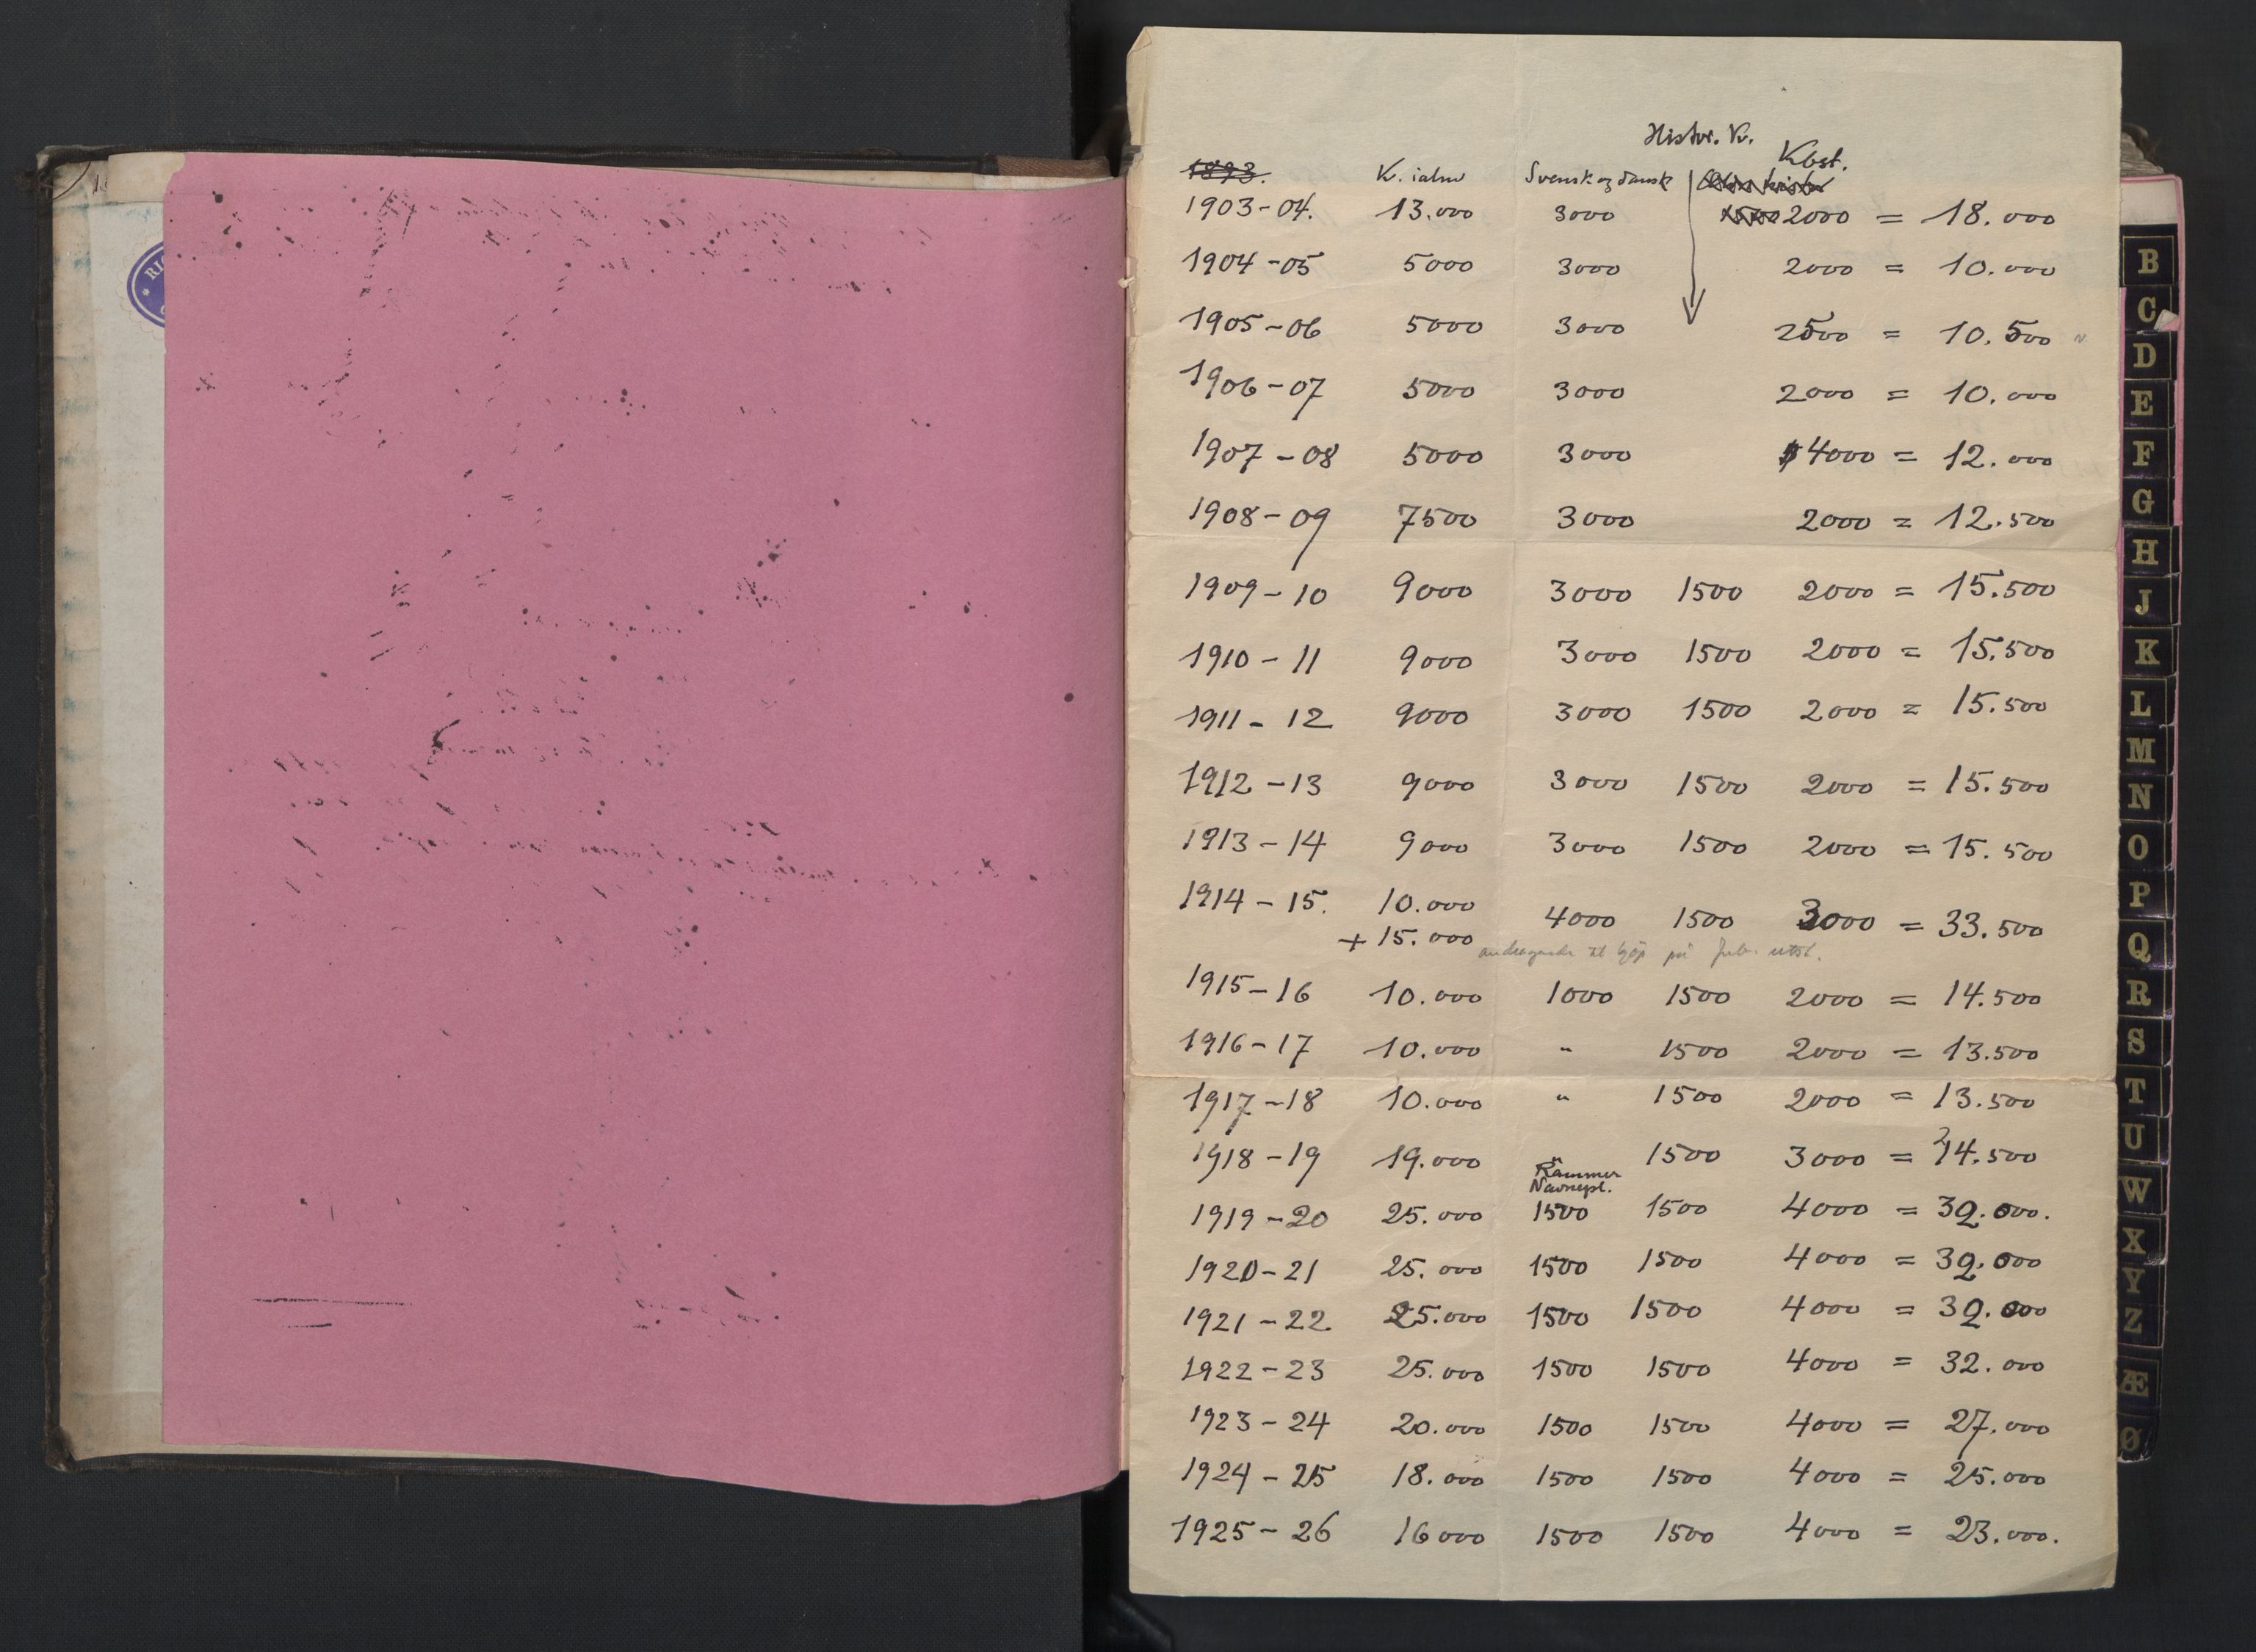 Histor. K.
Kbst.
1893. K. ialm Svensk og dansk
1903-04. 13.000 3000 2000 = 18.000
1904-05 5000 3000 2000 = 10.000
1905-06 5000 3000 2500 = 10.500
1906-07 5000 3000 2000 = 10.000
1907-08 5000 3000 4000 = 12.000
1908-09 7500 3000 2000 = 12.500
1909-10 9000 3000 1500 2000 = 15.500
1910-11 9000 3000 1500 2000 = 15.500
1911-12 9000 3000 1500 2000 = 15.500
1912-13 9000 3000 1500 2000 = 15.500
1913-14 9000 3000 1500 2000 = 15.500
1914-15. 10.000 4000 1500 3000 = 33.500
+ 15.000
til kjøp på Jub. utst.
1915-16 10.000 1000 1500 2000 = 14.500
1916-17 10.000 " 1500 2000 = 13.500
1917-18 10.000 " 1500 2000 = 13.500
1918-19 19.000 " 1500 3000 = 24.500
Rammer
Navnepl.
1919-20 25.000 1500 1500 4000 = 32.000.
1920-21 25.000 1500 1500 4000 = 32.000
1921-22 25.000 1500 1500 4000 = 32.000
1922-23 25.000 1500 1500 4000 = 32.000
1923-24 20.000 1500 1500 4000 = 27.000
1924-25 18.000 1500 1500 4000 = 25.000
1925-26 16000 1500 1500 4000 = 23.000.
B
C
D
E
F
G
H
J
K
L
M
N
O
P
Q
R
S
T
U
W
X
Y
Z
Æ
Ø